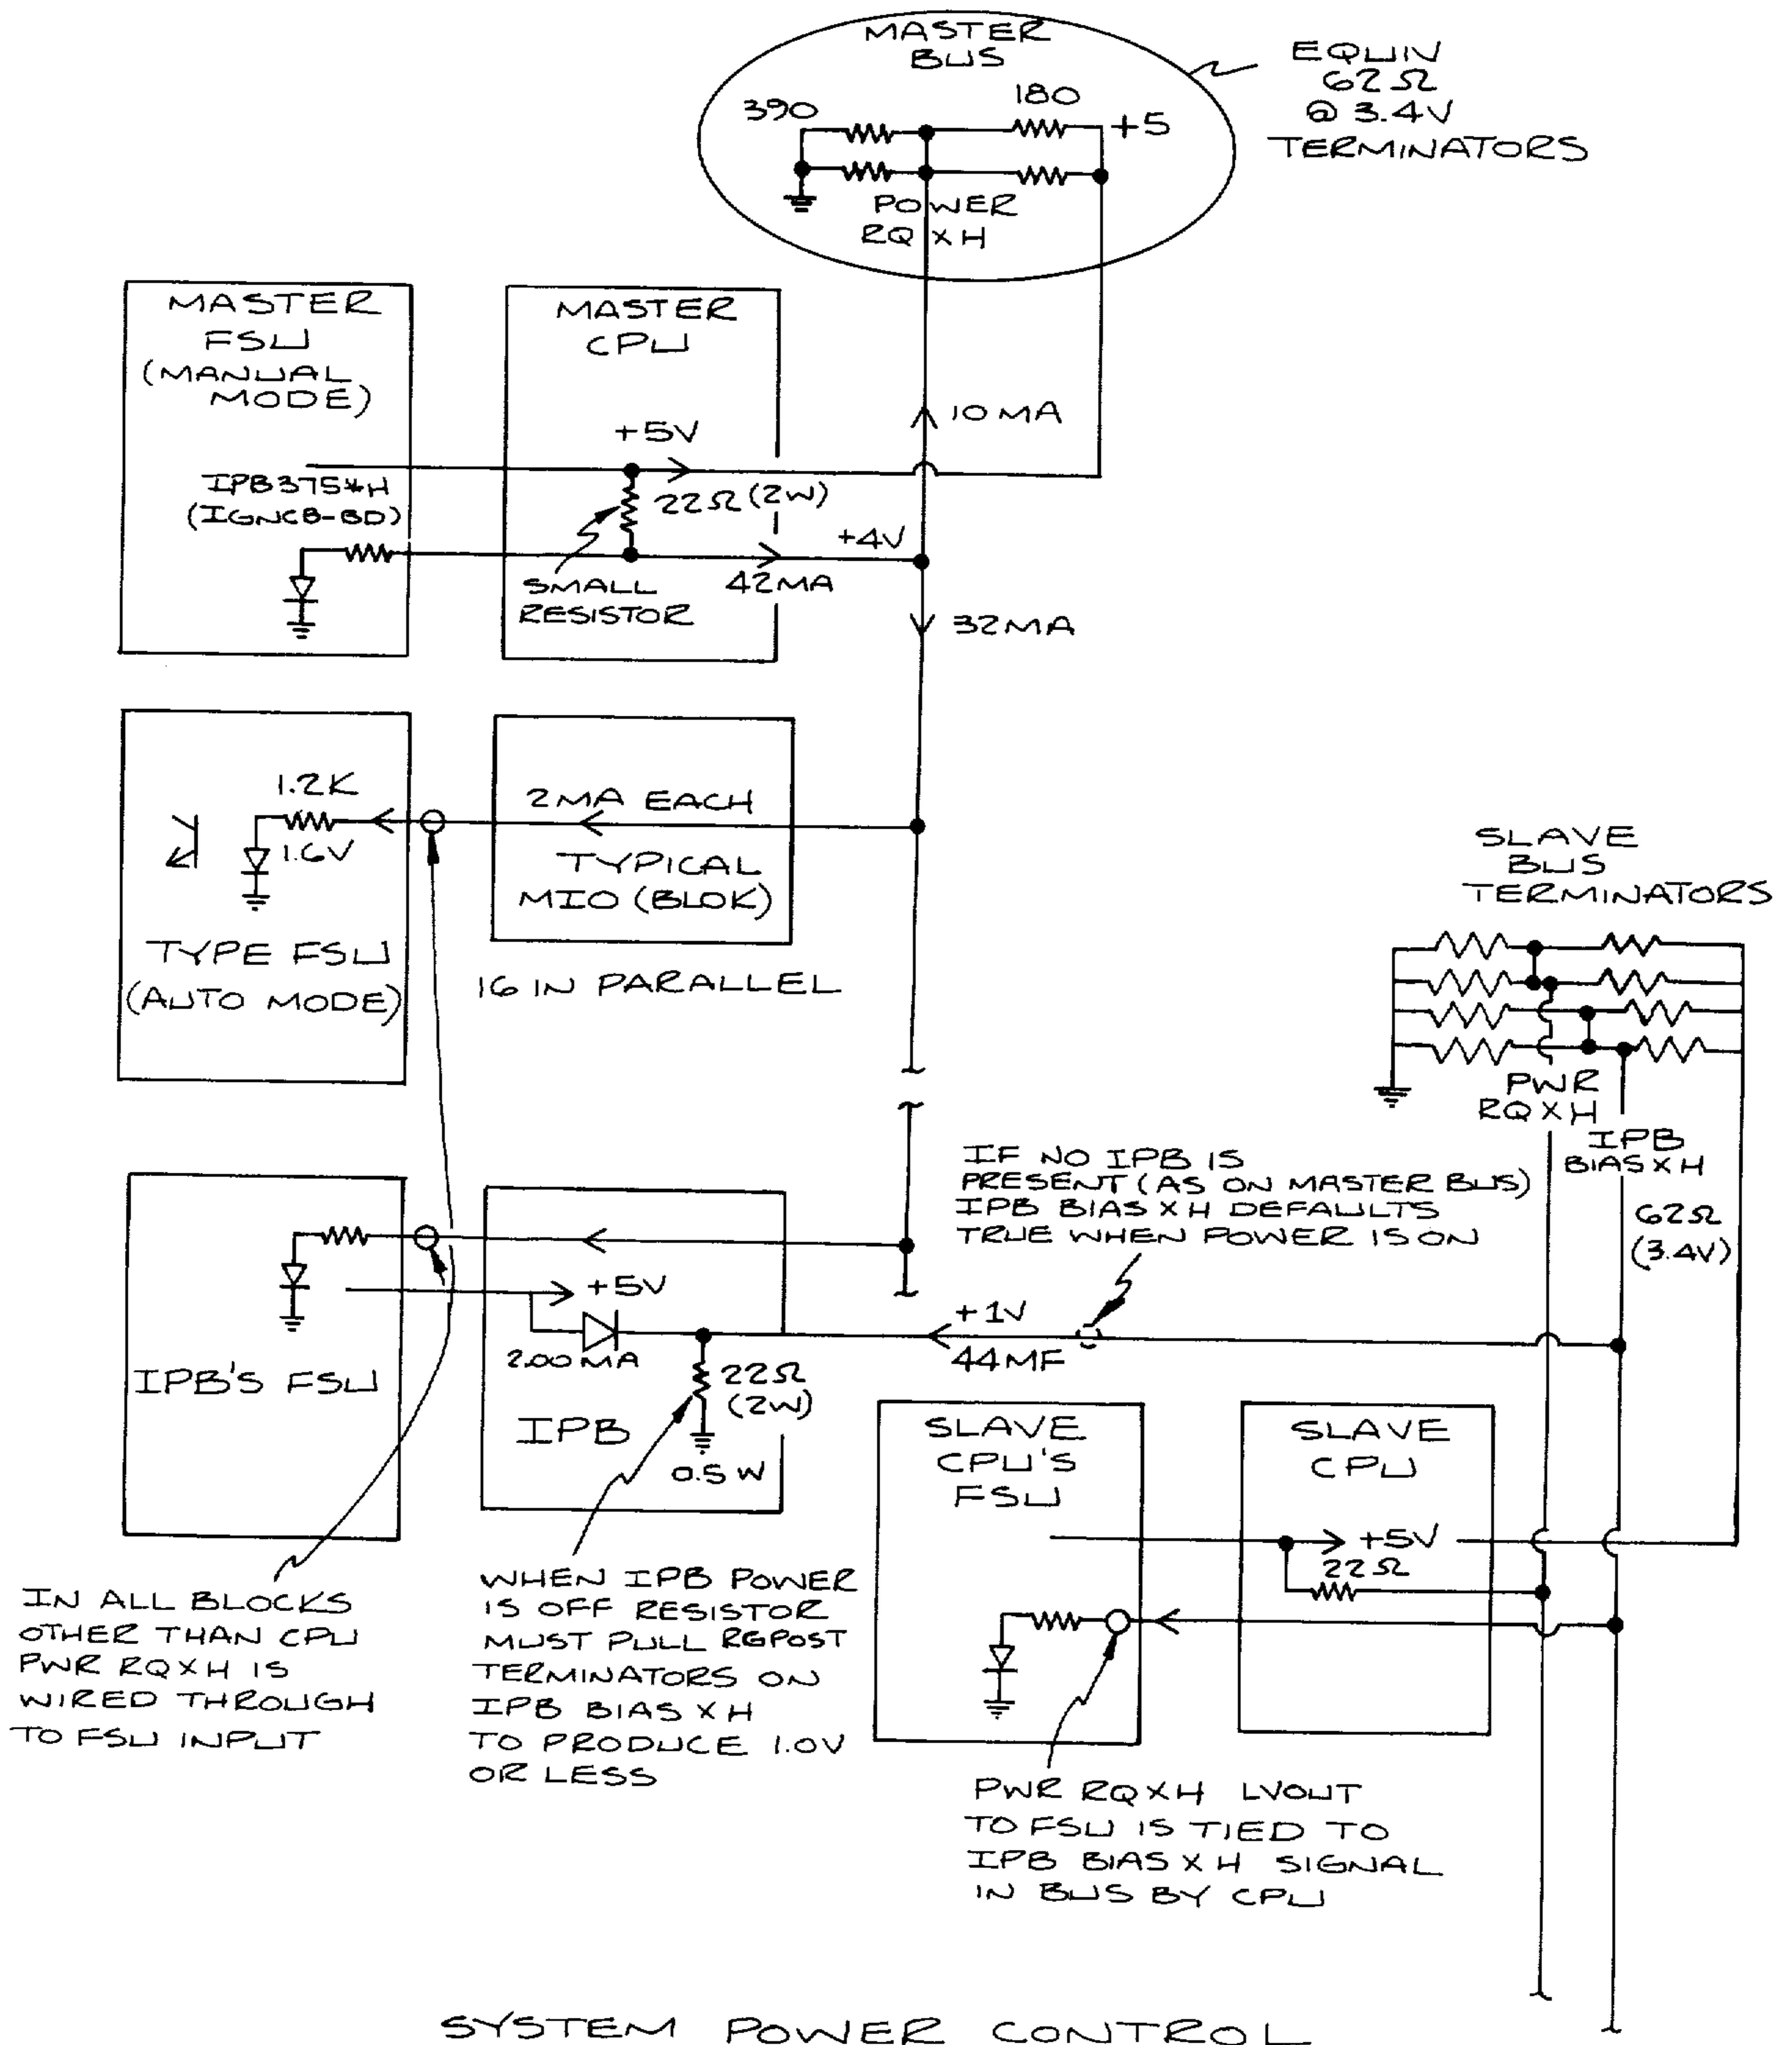 MASTER
BUS
EQUIV
62Ω
@ 3.4V
TERMINATORS
390
180
+5
POWER
RQ X H
MASTER
FSU
(MANUAL
MODE)
IPB375*H
(IGNCB-BD)
MASTER
CPU
+5V
22Ω (2W)
SMALL
RESISTOR
42MA
+4V
10 MA
32MA
1.2K
1.6V
TYPE FSU
(AUTO MODE)
2MA EACH
TYPICAL
MIO (BLOK)
16 IN PARALLEL
SLAVE
BUS
TERMINATORS
PWR
RQ X H
IPB
BIAS X H
62Ω
(3.4V)
IF NO IPB IS
PRESENT (AS ON MASTER BUS)
IPB BIAS X H DEFAULTS
TRUE WHEN POWER IS ON
IPB'S FSU
+5V
2.00 MA
22Ω
(2W)
IPB
0.5 W
+1V
44MF
SLAVE
CPU'S
FSU
SLAVE
CPU
+5V
22Ω
IN ALL BLOCKS
OTHER THAN CPU
PWR RQXH IS
WIRED THROUGH
TO FSU INPUT
WHEN IPB POWER
IS OFF RESISTOR
MUST PULL RGPOST
TERMINATORS ON
IPB BIAS X H
TO PRODUCE 1.0V
OR LESS
PWR RQXH LVOUT
TO FSU IS TIED TO
IPB BIAS X H SIGNAL
IN BUS BY CPU
SYSTEM POWER CONTROL